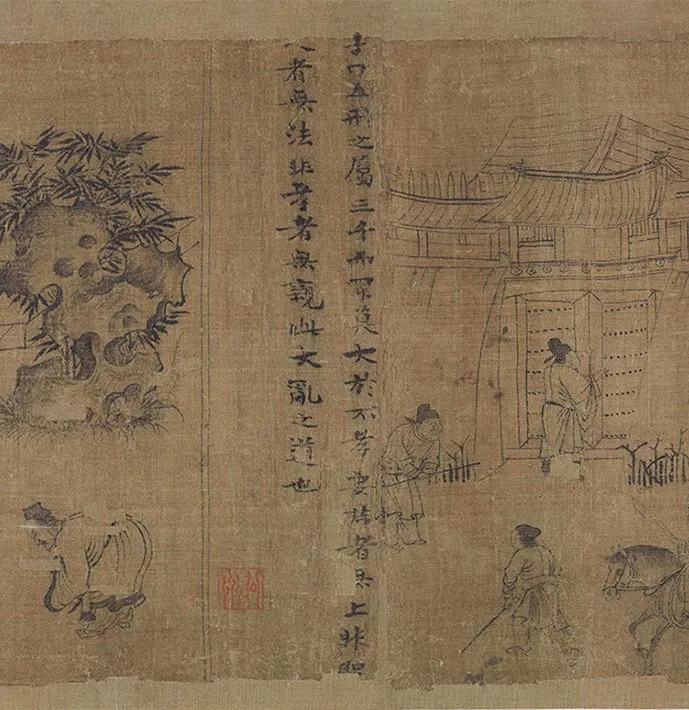 子曰五刑之屬三千而罪莫大於不孝要君者無上非聖
人者無法非孝者無親此大亂之道也